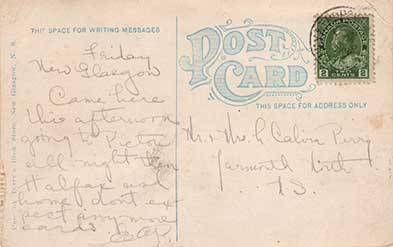 THIS SPACE FOR WRITING MESSAGES
POST
CARD
THIS SPACE FOR ADDRESS ONLY
2 CENTS 2
Friday
New Glasgow
Came here
this afternoon
going to Pictou
all night then
Halfax and
home dont ex
pect any more
cards
Mrs. Calvin Perry
Yarmouth North
N.S.
New Glasgow, N. S.